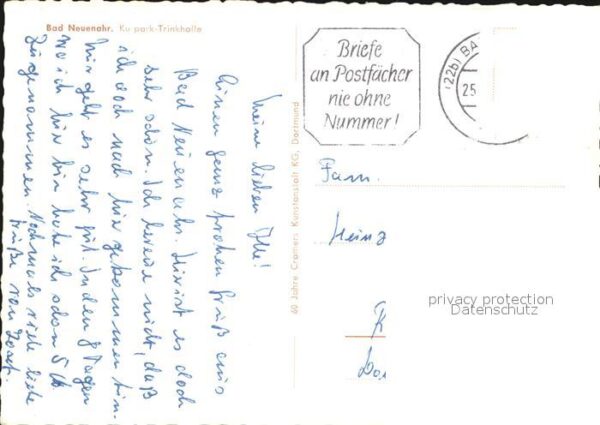 Bad Neuenahr. Kurpark-Trinkhalle
Meine lieben Alle!
Einen ganz frohen Gruß aus
Bad Neuenahr. Hier ist es doch
sehr schön. Ich bereue nicht, daß
ich doch nach hier gekommen bin.
Mir geht es sehr gut. In den 8 Tagen
wo ich hier bin habe ich schon 5 ℔
zugenommen. Nochmals viele liebe
Grüße von Josef.
60 Jahre Cramers Kunstanstalt KG, Dortmund
Briefe
an Postfächer
nie ohne
Nummer!
(22b) BA
25
Fam.
Heinz
K
Do
privacy protection
Datenschutz